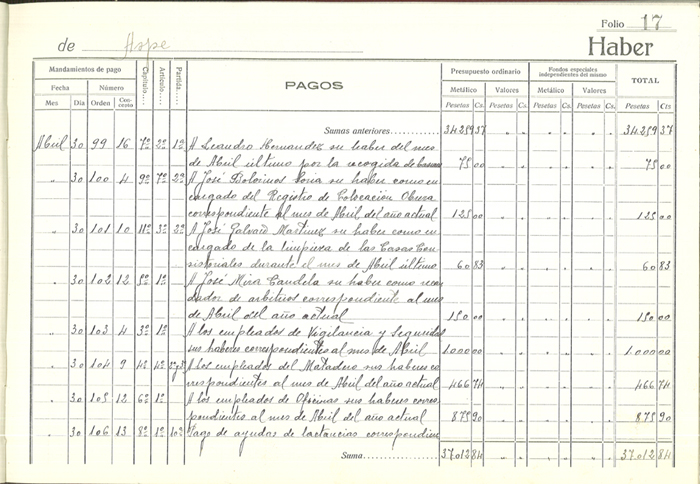 Folio 17
de Aspe Haber
Mandamientos de pago Capítulo Artículo Partida PAGOS Presupuesto ordinario Fondos especiales independientes del mismo TOTAL
Fecha Número Metálico Valores Metálico Valores
Mes Día Orden Concepto Pesetas Cs. Pesetas Cs. Pesetas Cs. Pesetas Cs. Pesetas Cts
Sumas anteriores 34.259 37 " " " " " " 34.259 37
Abril 30 99 16 7º 2º 1º A Leandro Hernandez su haber del mes
de Abril último por la recogida de basuras 75 00 " " " " " " 75 00
" 30 100 4 9º 7º 2º A José Bolvimos Soria su haber como en
cargado del Registro de Colocación Obrera
correspondiente al mes de Abril del año actual 125 00 " " " " " " 125 00
" 30 101 10 11º 3º 2º A José Galvañ Martinez su haber como en
cargado de la limpiesa de las Casas Con
sistoriales durante el mes de Abril último 60 83 " " " " " " 60 83
" 30 102 12 5º 1º A José Mira Candela su haber como recau
dador de arbitrios correspondiente al mes
de Abril del año actual 150 00 " " " " " " 150 00
" 30 103 4 3º 1º A los empleados de Vigilancia y Seguridad
sus haberes correspondientes al mes de Abril 1.000 00 " " " " " " 1.000 00
" 30 104 9 4º 4º A los empleados del Matadero sus haberes co
rrespondientes al mes de Abril del año actual 466 74 " " " " " " 466 74
" 30 105 12 6º 1º A los empleados de Oficinas sus haberes corres
pondientes al mes de Abril del año actual 875 90 " " " " " " 875 90
" 30 106 13 8º 1º 10º Pago de ayudas de lactancias correspondien
Suma 37.012 84 " " " " " " 37.012 84